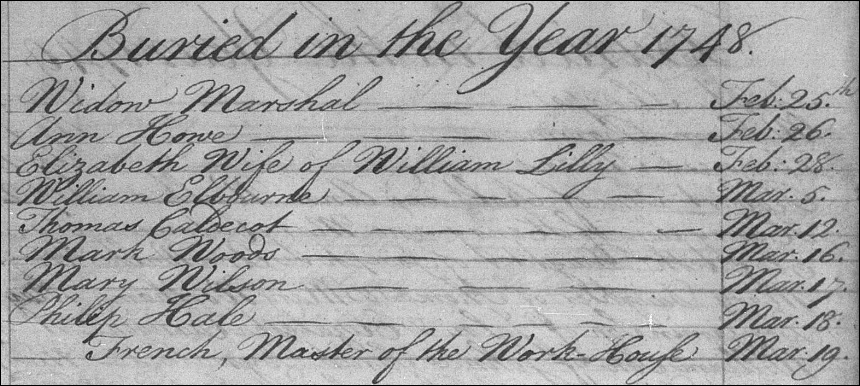 Buried in the Year 1748.
Widow Marshal — — — — — Feb: 25.th
Ann Howe — — — — — — Feb: 26.
Elizabeth Wife of William Lilly — Feb: 28.
William Elbourne — — — — — Mar. 5.
Thomas Caldecot — — — — — — Mar. 12.
Mark Woods — — — — — Mar. 16.
Mary Wilson — — — — — Mar. 17.
Philip Hale — — — — — — Mar. 18.
French, Master of the Work-House Mar. 19.